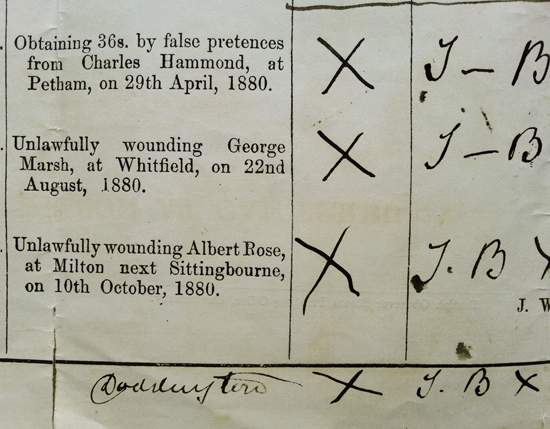 Obtaining 36s. by false pretences
from Charles Hammond, at
Petham, on 29th April, 1880.
X
J - B
Unlawfully wounding George
Marsh, at Whitfield, on 22nd
August, 1880.
X
J - B
Unlawfully wounding Albert Rose,
at Milton next Sittingbourne,
on 10th October, 1880.
X
J. B
J. W
Doddington X J. B X